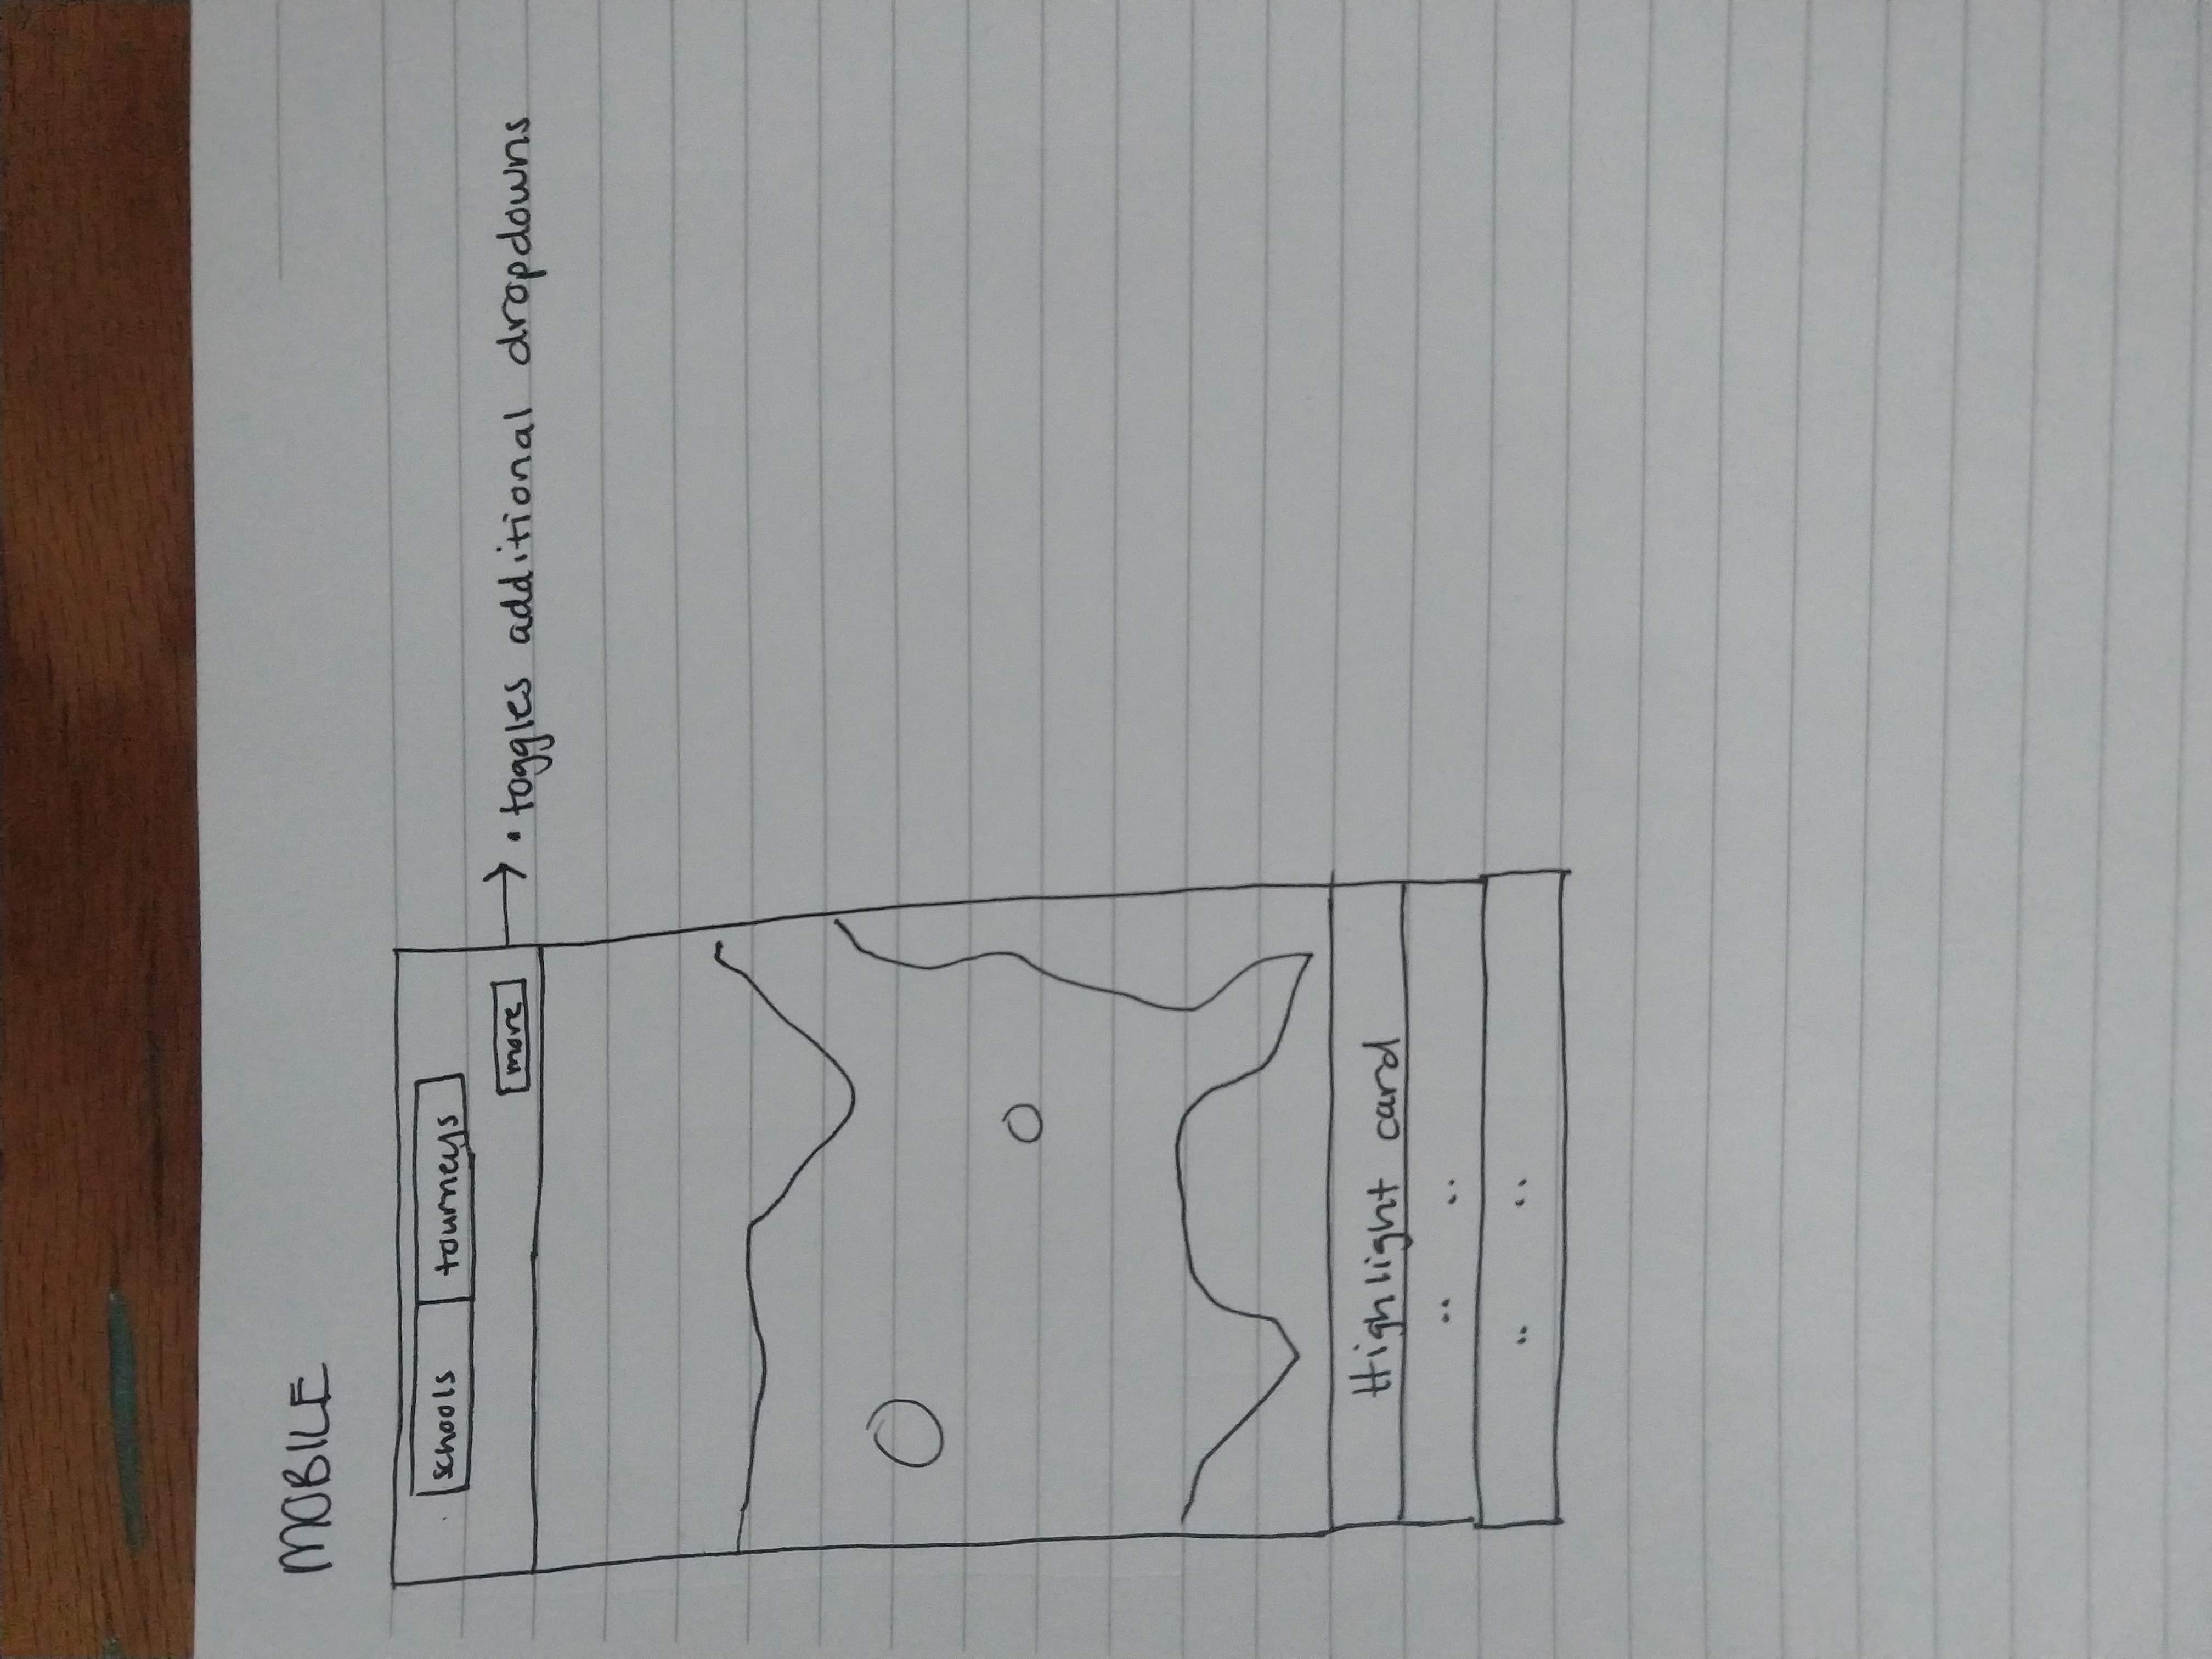 MOBILE
schools tourneys
more • toggles additional dropdowns
Highlight card
.. ..
.. ..